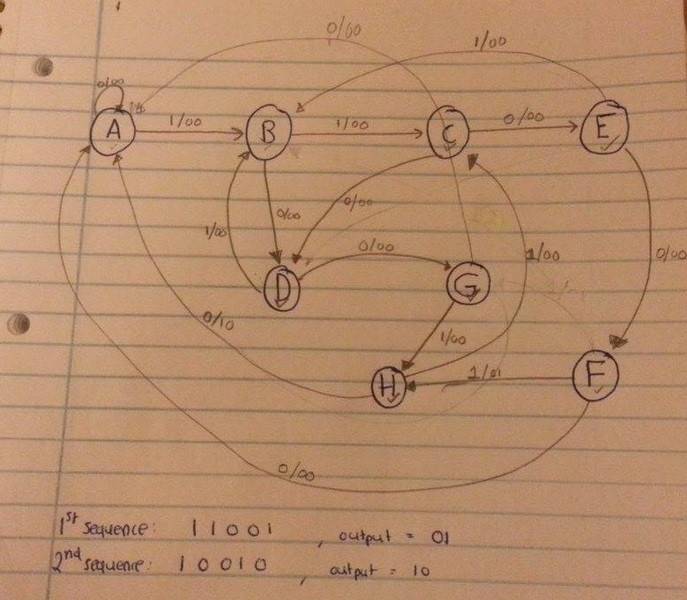 0/00
1/00
0/00
A 1/00 B 1/00 C 0/00 E
1/00 0/00 0/00
0/00 1/00 0/00
D G
0/10 1/00
H 1/01 F
0/00
1st sequence: 11001 , output = 01
2nd sequence: 10010 , output = 10